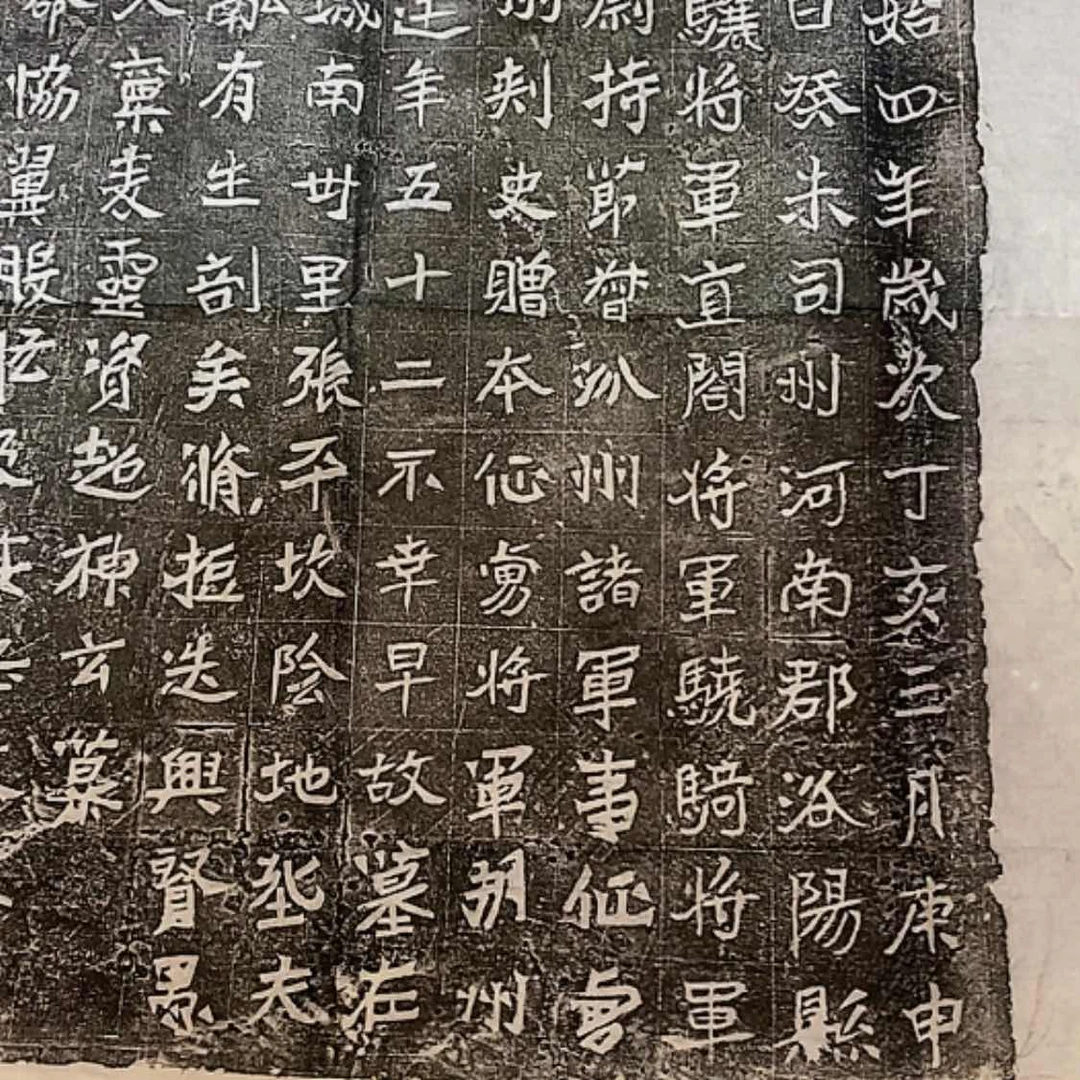 始四年歲次丁亥三月庚申
日癸未司州河南郡洛陽縣
驤將軍直閤將軍驍騎將軍
尉持節督汾州諸軍事征虜
刾史贈本征虜將軍朔州
年五十二不幸早故墓在
城南丗里張平坎陰地夫
亂有生剖矣脩短迭興賢愚
稟靈資超神玄募
恊翼股